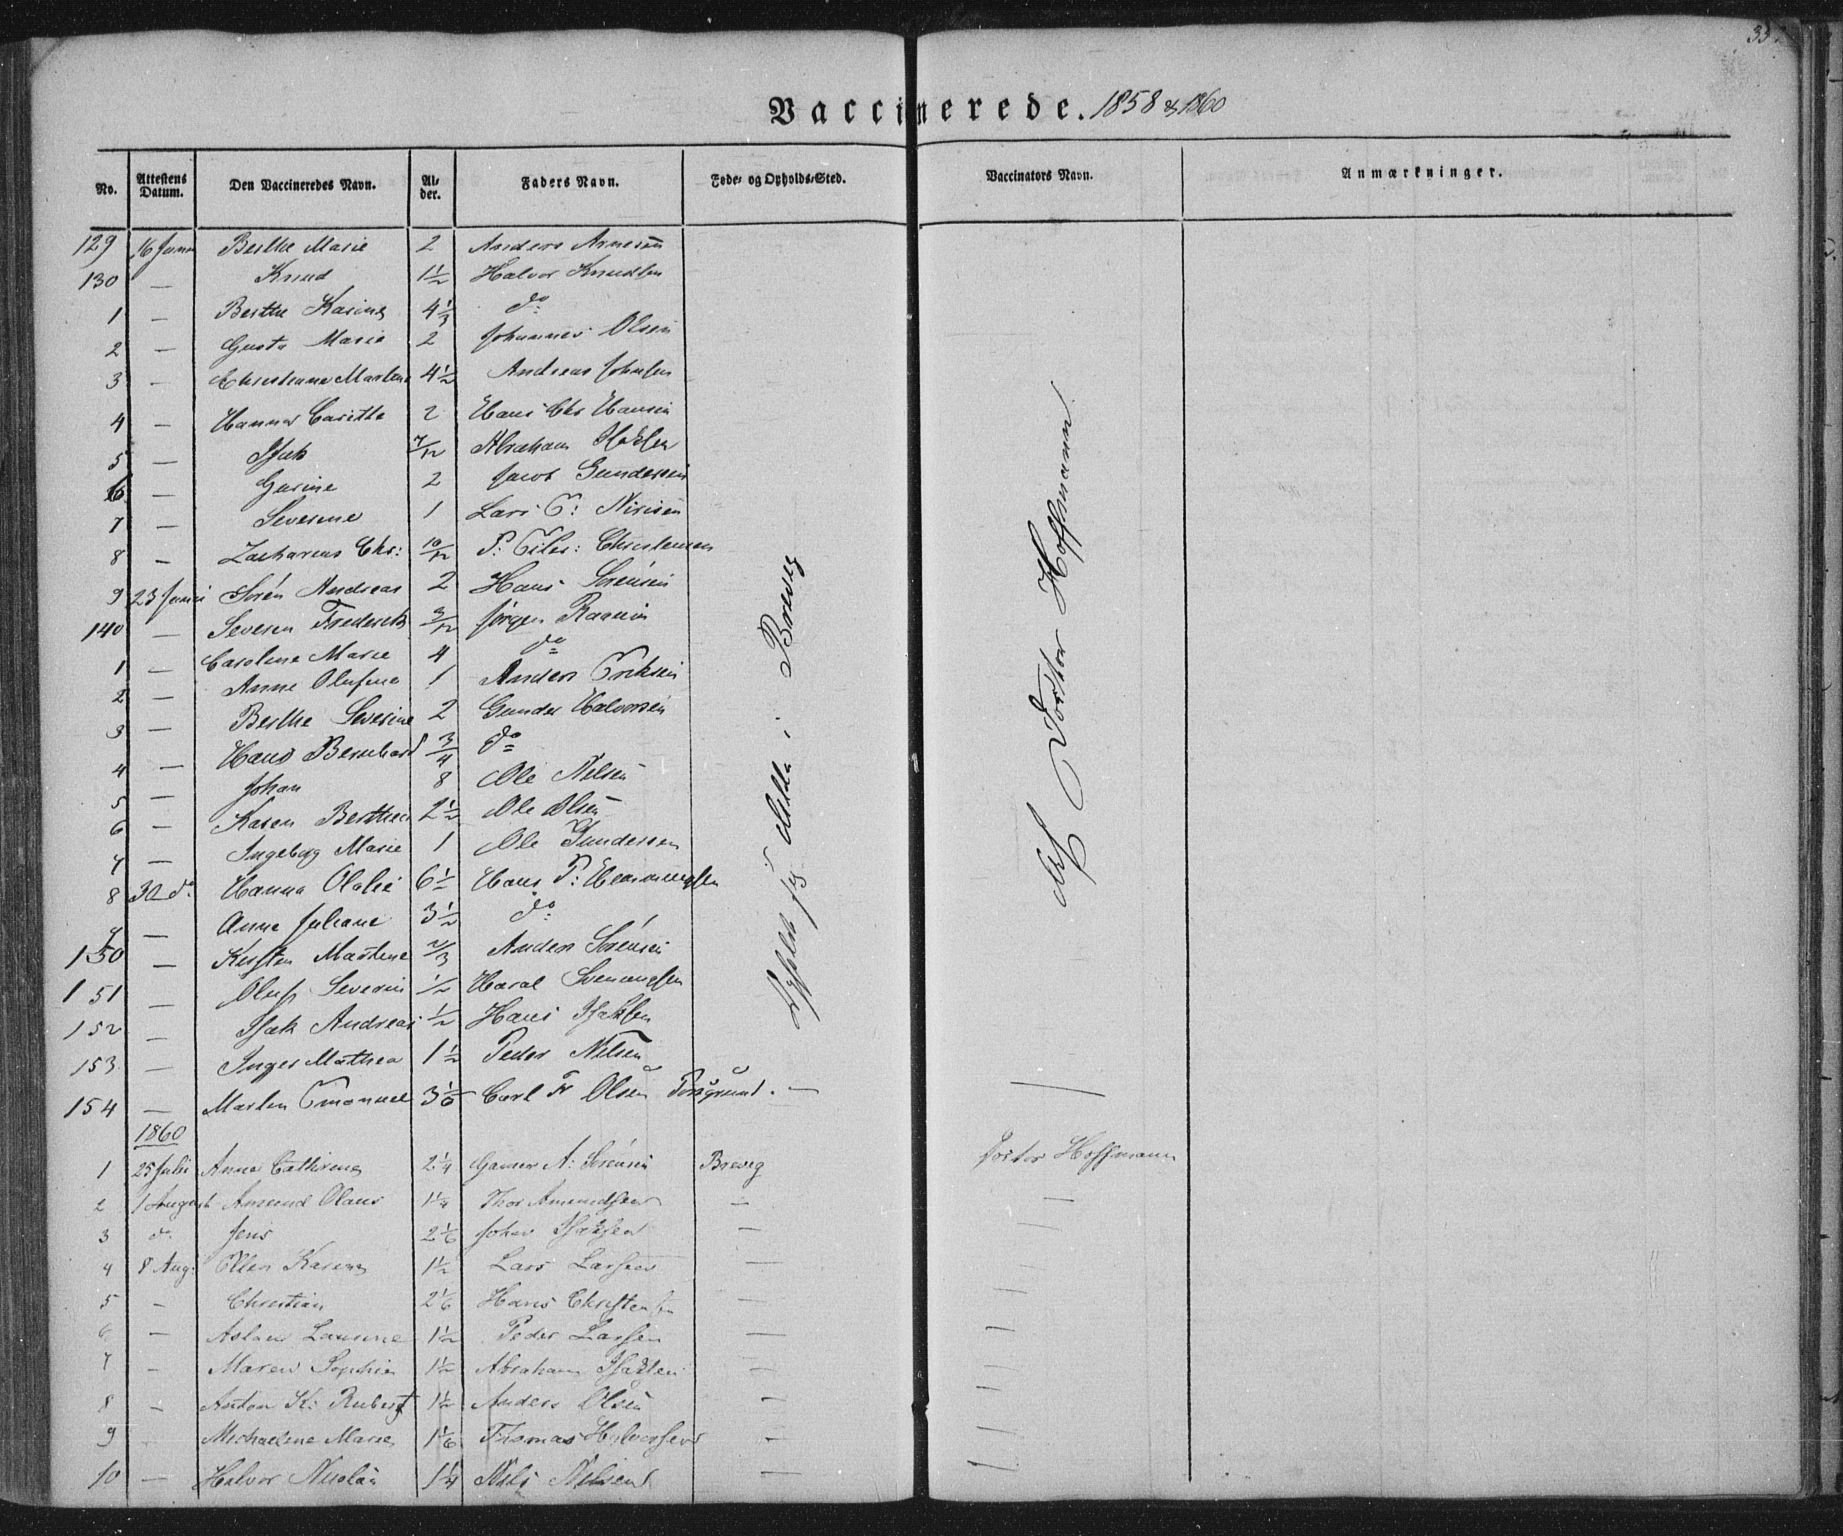 33.
Vaccinerede. 1858 & 1860
No. Attestens Datum. Den Vaccineredes Navn. Alder. Faders Navn. Føde- og Opholds-Sted. Vaccinators Navn. Anmærkninger.
129 16 Juni Berthe Marie 2 Anders Arnesen
130 — Knud 1½ Halvor Knudsen
1 — Berthe Karine 4⅓ do
2 — Gusta Marie 2 Johannes Olsen
3 — Christiane Marlene 4½ Andreas Johnsen
4 — Hanna Caritte 2 Hans Chr Hansen
5 — Isak 7/12 Abraham Isaksen
6 — Gurine 2 Jacob Gundersen
7 — Severine 1 Lars
8 — Zacharias Chr: 10/12 P: Christensen
9 23 Juni Sørén Andreas 2 Hans Sørensen
140 — Severin Frederik 3/12 Jørgen
1 — Caroline Marie 4 do
2 — Anne Olufine 1 Anders Eriksen
3 — Berthe Severine 2 Gunder Halvorsen
4 — Hans Bernhard 3/4 do
5 — Johan 8 Ole Nilsen
6 — Karen Berthea 2½ Ole Olsen
7 — Ingeborg Marie 1 Ole Gundersen
8 30 do Hanna Olalie 6½ Hans P: Hemmingsen
9 — Anne Juliane 3½ do
150 — Kirsten Martine 2/3 Anders Sørensen
151 — Oluf Severin ½ Haral Svennugsen
152 — Isak Andreas ½ Hans Isaksen
153 — Inger Mathea 1½ Peder Nilsen
154 — Martin Emanuel 3⅙ Carl Fr Olsen Porsgrund. —
alle i Brevig
af Doctor Hoffmann
1860
1 25 Juli Anne Cathrine 2¼ Gunner A: Sørensen Brevig Doctor Hoffmann
2 1 August Amund Olaus 1¼ Thor Amundsen — —
3 do Jens 2⅙ Johan Isaksen — —
4 8 Aug: Ellen Karine 1½ Lars Larsen — —
5 - Christian 2⅙ Hans Christensen — —
6 — Aslau Laurine 1½ Peder Larsen — —
7 - Maren Sophie 1½ Abraham Isaksen — —
8 - Anton K: Rubert 1½ Anders Olsen — —
9 - Michaeline Marie 1⅙ Thomas Halvorsen — —
10 — Halvor Nicolai 1¼ Nils Nilsen — —